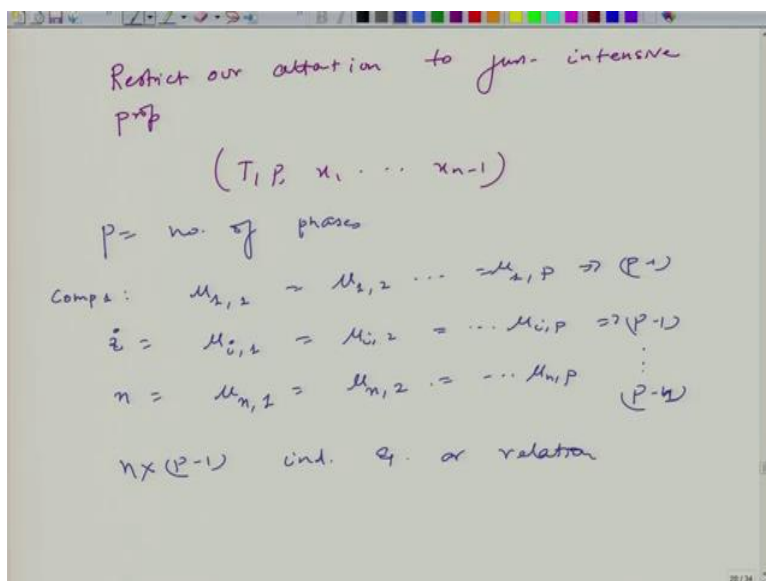 Restrict our attention to fun. intensive
prop
(T, P, x₁ ... xn-1)
P = no. of phases
Comp 1: μ1,1 = μ1,2 ... = μ1,P => (P-1)
i = μi,1 = μi,2 = ... μi,P => (P-1)
⋮
n = μn,1 = μn,2 = ... μn,P (P-1)
n×(P-1) ind. eq. or relation
20/34